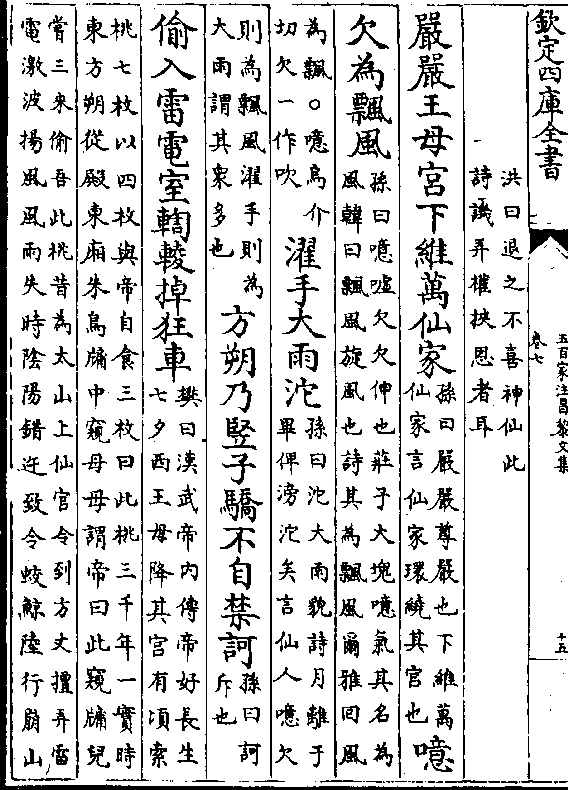 欽定四庫全書
五百家注昌黎文集
卷七
十五
洪曰退之不喜神仙此
詩譏弄權挾恩者耳
嚴嚴王母宮下維萬仙家
孫曰嚴嚴尊嚴也下維萬
仙家言仙家環繞其宮也
噫
欠為飄風
孫曰噫噓欠欠伸也莊子大塊噫氣其名為
風韓曰飄風旋風也詩其為飄風爾雅回風
為飄○噫烏介
切欠一作吹
濯手大雨沱
孫曰沱大雨貌詩月離于
畢俾滂沱矣言仙人噫欠
則為飄風濯手則為
大雨謂其衆多也
方朔乃豎子驕不自禁訶
孫曰訶
斥也
偷入雷電室輷輘掉狂車
樊曰漢武帝內傳帝好長生
七夕西王母降其宮有頃索
桃七枚以四枚與帝自食三枚曰此桃三千年一實時
東方朔從殿東廂朱鳥牖中窺母母謂帝曰此窺牖兒
嘗三來偷吾此桃昔為太山上仙官令到方丈擅弄雷
電激波揚風風雨失時陰陽錯迕致令蛟鯨陸行崩山